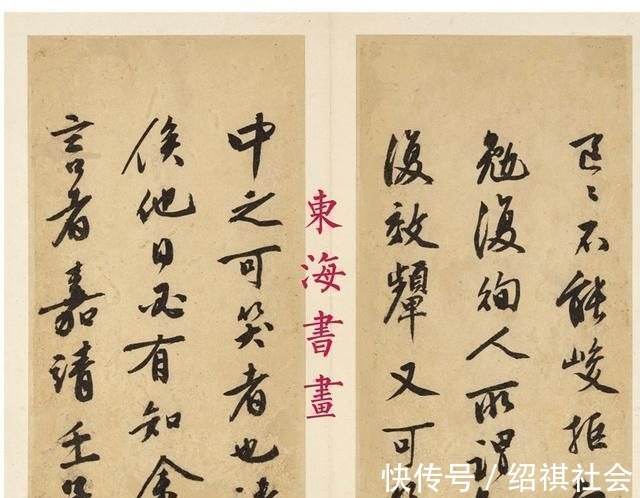 又不能峻拒
勉復徇人所謂
復效顰又可
中之可笑者也
俟他日必有知余
言者嘉靖壬
東海書畫
快传号/绍祺社会